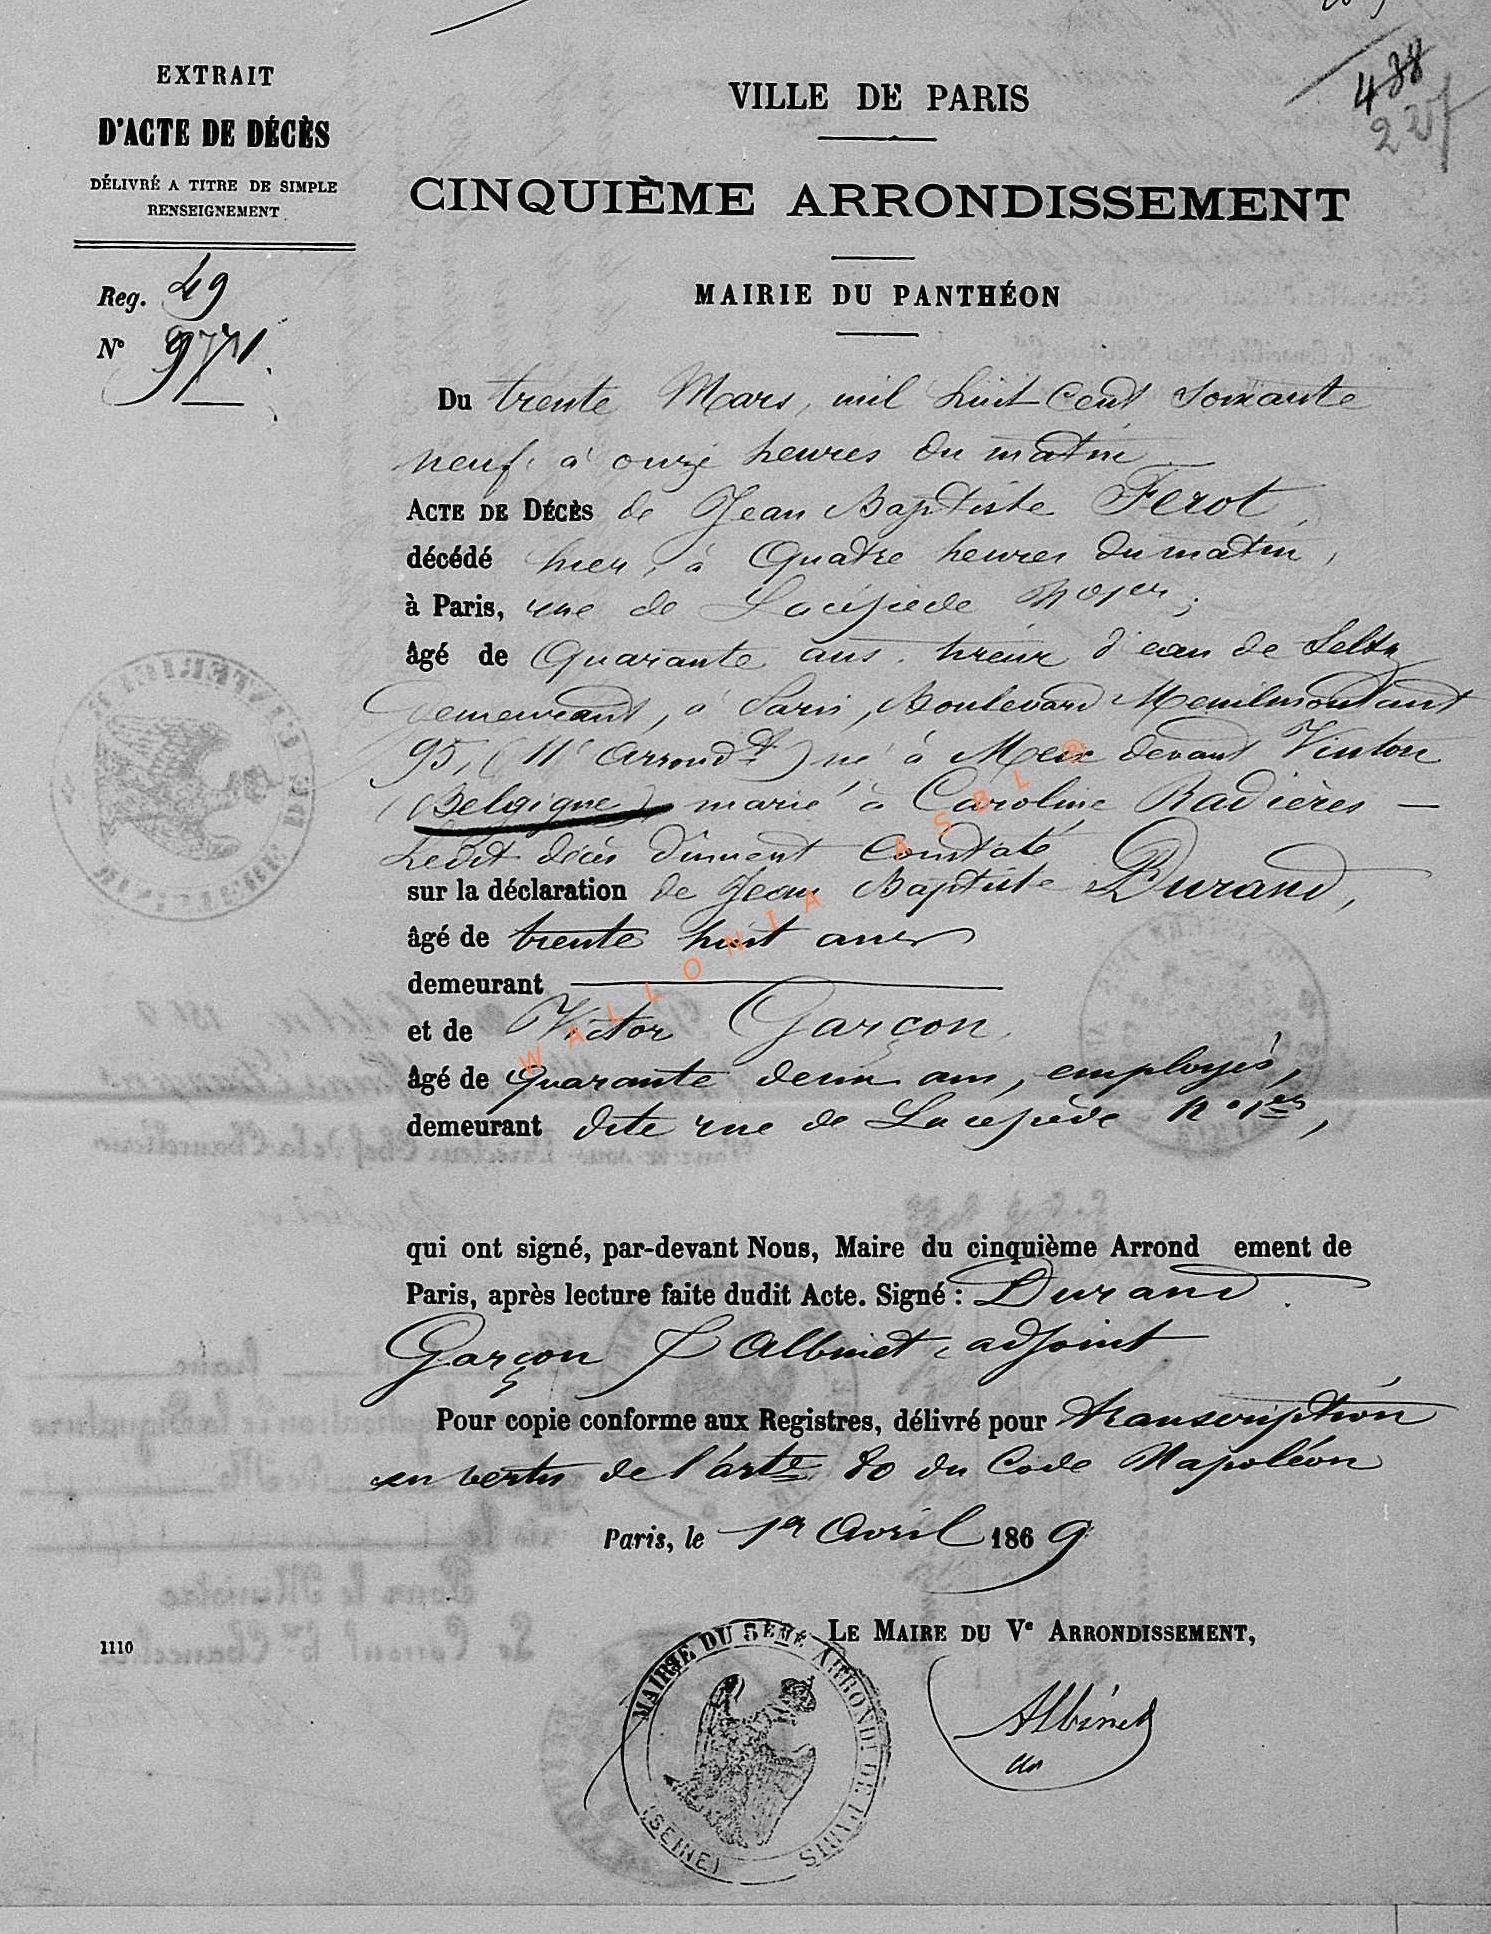 EXTRAIT
D'ACTE DE DÉCÈS
DÉLIVRÉ A TITRE DE SIMPLE
RENSEIGNEMENT
Reg. 49
N° 971
488
227
VILLE DE PARIS
CINQUIÈME ARRONDISSEMENT
MAIRIE DU PANTHÉON
Du trente Mars, mil huit cent soixante
neuf, à onze heures du matin
ACTE DE DÉCÈS de Jean Baptiste Ferot,
décédé hier, à Quatre heures du matin,
à Paris, rue de Lacépède
âgé de Quarante ans, tireur d'eau de Seltz
demeurant, à Paris, Boulevard Menilmontant
95, (11e arrondt) né à Meix devant Virton
(Belgique), marié à Caroline Radières —
Ledit décès dûment constaté
sur la déclaration de Jean Baptiste Durand,
âgé de trente huit ans
demeurant
et de Victor Garçon,
âgé de quarante deux ans, employés,
demeurant dite rue de Lacépède
qui ont signé, par-devant Nous, Maire du cinquième Arrond ement de
Paris, après lecture faite dudit Acte. Signé : Durand
Garçon & Albinet, adjoint
Pour copie conforme aux Registres, délivré pour transcription
en vertu de l'arte 80 du Code Napoléon
Paris, le 1er Avril 1869
LE MAIRE DU Ve ARRONDISSEMENT,
Albinet
1110
MAIRIE DU 5EME ARROND. DE PARIS
(SEINE)
WALLONIA ASBL ®